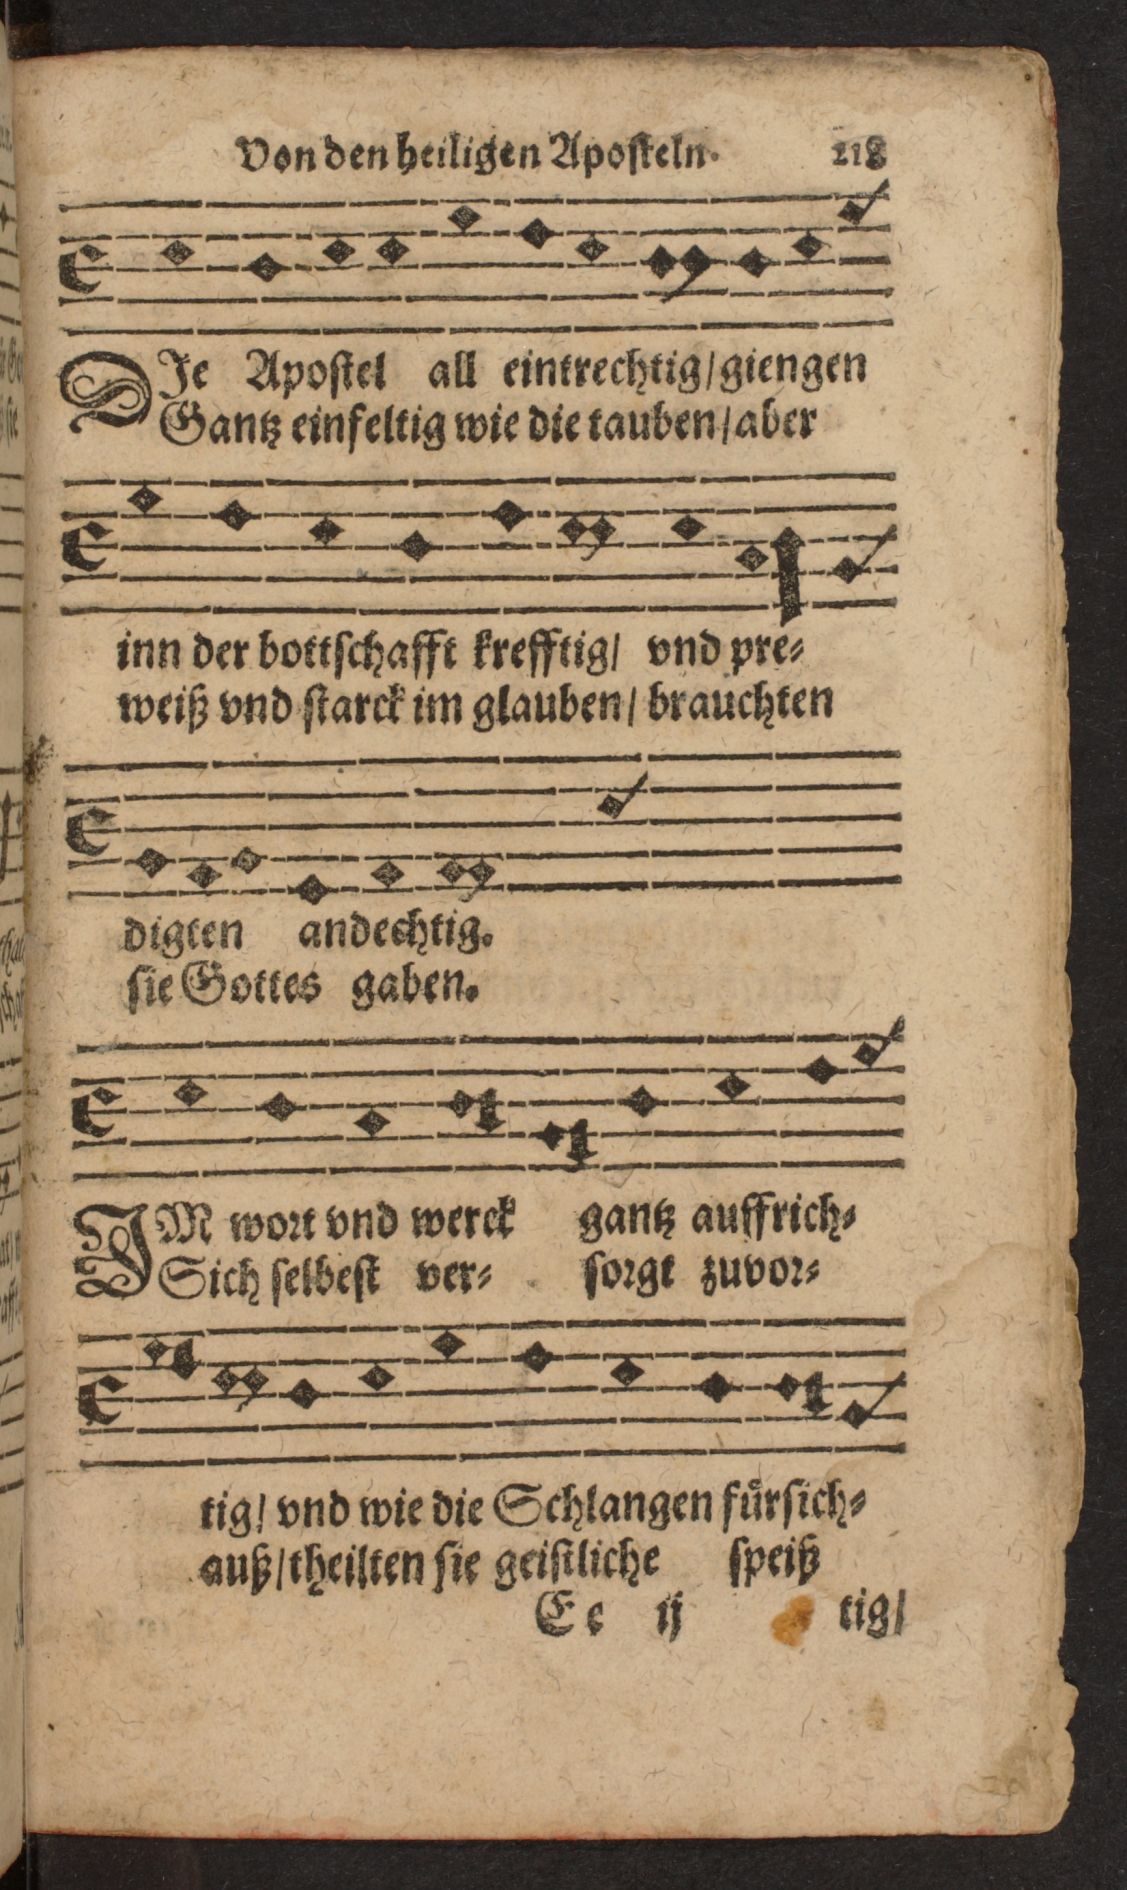 Von den heiligen Aposteln. 218
DJe Apostel all eintrechtig/giengen
Gantz einfeltig wie die tauben/aber
inn der bottschafft krefftig/ vnd pre⸗
weiß vnd starck im glauben/ brauchten
digten andechtig.
sie Gottes gaben.
JM wort vnd werck gantz auffrich⸗
Sich selbest ver⸗ sorgt zuvor⸗
tig/ vnd wie die Schlangen fuͤrsich⸗
auß/theilten sie geistliche speiß
Ee ij tig/